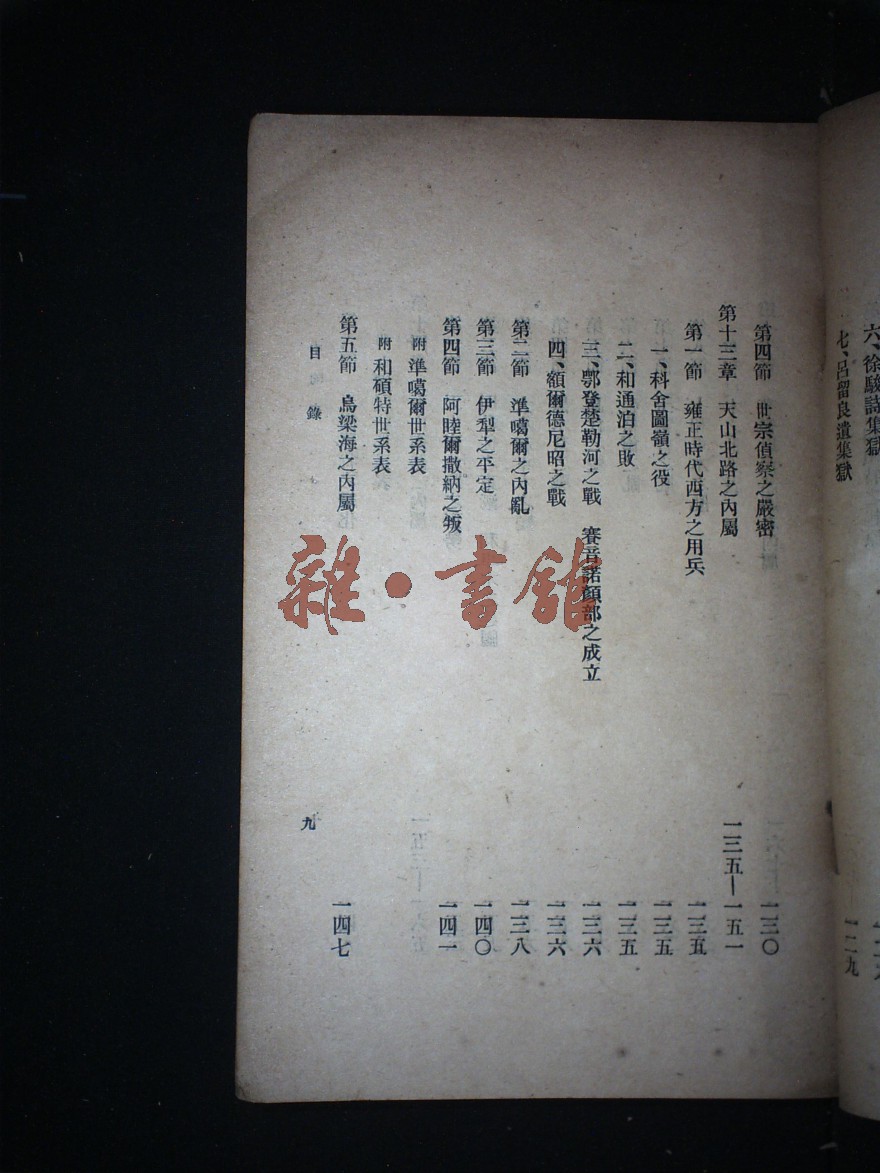 六、徐駿詩集獄
七、呂留良遺集獄 一二九
第四節 世宗偵察之嚴密 一三〇
第十三章 天山北路之內屬 一三五—一五一
第一節 雍正時代西方之用兵 一三五
一、科舍圖嶺之役 一三五
二、和通泊之敗 一三五
三、鄂登楚勒河之戰 賽音諾顏部之成立 一三六
四、額爾德尼昭之戰 一三六
第二節 準噶爾之內亂 一三八
第三節 伊犁之平定 一四〇
第四節 阿睦爾撒納之叛 一四一
附 準噶爾世系表
附 和碩特世系表
第五節 烏梁海之內屬 一四七
目錄 九
雜·書館